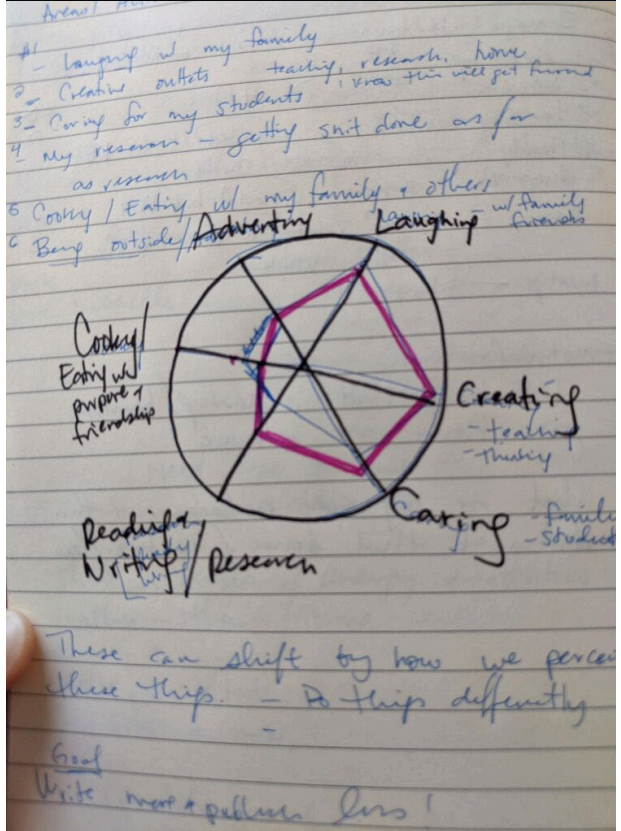 Areas/
#1 - Laughing w my family
2 - Creative outlets teaching, research, home
know this will get funned
3 - Caring for my students
4 - My research - getting shit done as far
as research
5 Cooky / Eating w/ my family + others
6 Being outside/
Adventiny
Laughing - w/ family
friends
Cooky/
Eating w/
purpose +
friendship
Creating
- teaching
- thinking
Caring - family
- student
Reading +
Writing / Research
These can shift by how we percei
these things. - Do things differently
-
Goal
Write more + publish less!